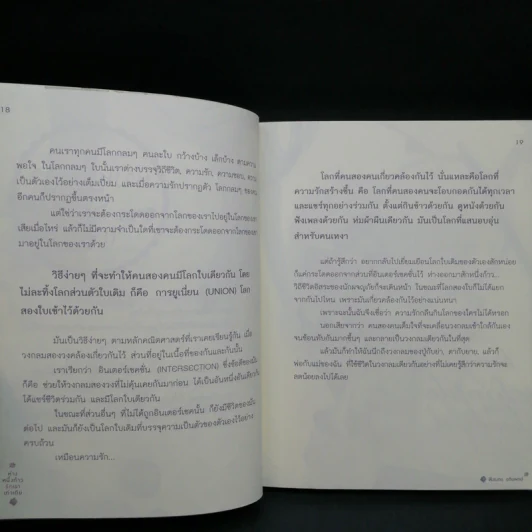 18
คนเราทุกคนมีโลกกลมๆ คนละใบ กว้างบ้าง เล็กบ้าง ตามความ
พอใจ ในโลกกลมๆ ใบนั้นเราต่างบรรจุวิถีชีวิต, ความรัก, ความชอบ,
เป็นตัวเองไว้อย่างเต็มเปี่ยม และเมื่อความรักปรากฏตัว โลกกลมๆ ของ
อีกคนก็ปรากฏขึ้นตรงหน้า
แต่ใช่ว่าเราจะต้องกระโดดออกจากโลกของเราไปอยู่ในโลกของ
เสียเมื่อไหร่ แล้วก็ไม่มีความจำเป็นใดที่เขาจะต้องกระโดดออกจากโลก
มาอยู่ในโลกของเราด้วย
วิธีง่ายๆ ที่จะทำให้คนสองคนมีโลกใบเดียวกัน โดย
ไม่ละทิ้งโลกส่วนตัวใบเดิม ก็คือ การยูเนี่ยน (UNION) โลก
สองใบเข้าไว้ด้วยกัน
มันเป็นวิธีง่ายๆ ตามหลักคณิตศาสตร์ที่เราเคยเรียนรู้กัน เมื่อ
วงกลมสองวงคล้องเกี่ยวกันไว้ ส่วนที่อยู่ในเนื้อที่ของกันและกันนั้น
เราเรียกว่า อินเตอร์เซคชั่น (INTERSECTION) ซึ่งข้อดีของมัน
ก็คือ ช่วยให้วงกลมสองวงที่ไม่คุ้นเคยกันมาก่อน ได้เป็นอันหนึ่งอันเดียว
ได้แชร์ชีวิตร่วมกัน และมีโลกใบเดียวกัน
ในขณะที่ส่วนอื่นๆ ที่ไม่ได้ถูกอินเตอร์เซคนั้น ก็ยังมีชีวิตของมัน
ต่อไป และมันก็ยังเป็นโลกใบเดิมที่บรรจุความเป็นตัวของตัวเองไว้อย่าง
ครบถ้วน
เหมือนความรัก...
ห่าง
หนึ่งก้าว
19
โลกที่คนสองคนเกี่ยวคล้องกันไว้ นั่นแหละคือโลกที่
ความรักสร้างขึ้น คือ โลกที่คนสองคนจะโอบกอดกันได้ทุกเวลา
และแชร์ทุกอย่างร่วมกัน ตั้งแต่กินข้าวด้วยกัน ดูหนังด้วยกัน
ฟังเพลงด้วยกัน ห่มผ้าผืนเดียวกัน มันเป็นโลกที่แสนอบอุ่น
สำหรับคนเหงา
แต่ถ้ารู้สึกว่า อยากกลับไปเยี่ยมเยือนโลกใบเดิมของตัวเองสักหน่อย
ก็แค่กระโดดออกจากส่วนที่อินเตอร์เซคชั่นไว้ ห่างออกมาสักหนึ่งก้าว...
วิถีชีวิตอิสระของนักผจญภัยก็จะเดินหน้า ในขณะที่โลกสองใบก็ไม่ได้แยก
จากกันไปไหน เพราะมันเกี่ยวคล้องกันไว้อย่างแน่นหนา
เพราะฉะนั้นฉันจึงเชื่อว่า ความรักกลืนกินโลกของใครไม่ได้หรอก
นอกเสียจากว่า คนสองคนเต็มใจที่จะเคลื่อนวงกลมเข้าใกล้กันเอง
จนซ้อนทับกันมากขึ้นๆ และกลายเป็นวงกลมเดียวกันในที่สุด
แล้วมันก็ทำให้ฉันนึกถึงวงกลมของปู่กับย่า, ตากับยาย, แล้วก็
พ่อกับแม่ของฉัน ที่ใช้ชีวิตในวงกลมเดียวกันอย่างที่ไม่เคยรู้สึกว่าความรักจะ
ลดน้อยลงไปได้เลย